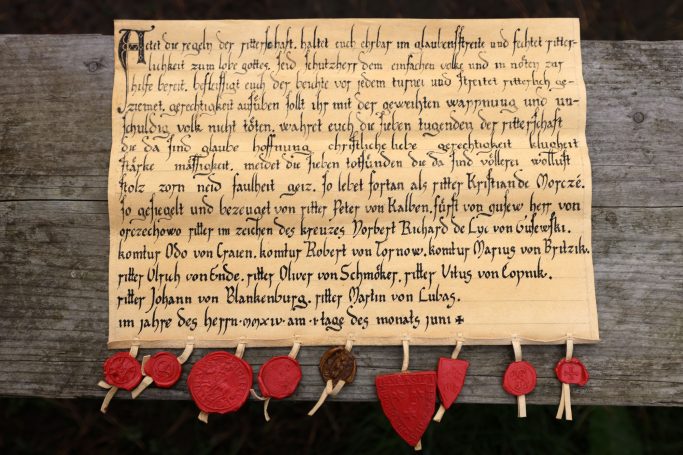 Achtet die regeln der ritterschaft. haltet euch ehrbar im glaubensstreite und fechtet ritter-
lichkeit zum lobe gottes. seid schutzherr dem einfachen volke und in nöten zur
hilfe bereit. befleissigt euch der beichte vor jedem turnei und streitet ritterlich ge-
ziemet. gerechtigkeit ausüben sollt ihr mit der geweihten wappnung und un-
schuldig volk nicht töten. wahret euch die sieben tugenden der ritterschaft
die da sind glaube hoffnung christliche liebe gerechtigkeit klugheit
stärke mässigkeit. meidet die sieben totsünden die da sind völlerei wollust
stolz zorn neid faulheit geiz. so lebet fortan als ritter Kristian de Morczé.
so gesiegelt und bezeuget von ritter Peter von Kalben, fürst von gusew herr von
orezechowo ritter im zeichen des kreuzes Norbert Richard de Lyc von Gusewski.
komtur Odo von Graien. komtur Robert von Tornow. komtur Marius von Britzik.
ritter Ulrich von Ende. ritter Oliver von Schmöker. ritter Vitus von Copnik.
ritter Johann von Blankenburg. ritter Martin von Lubas.
im jahre des herrn·MMXIV·am·1·tage des monats juni